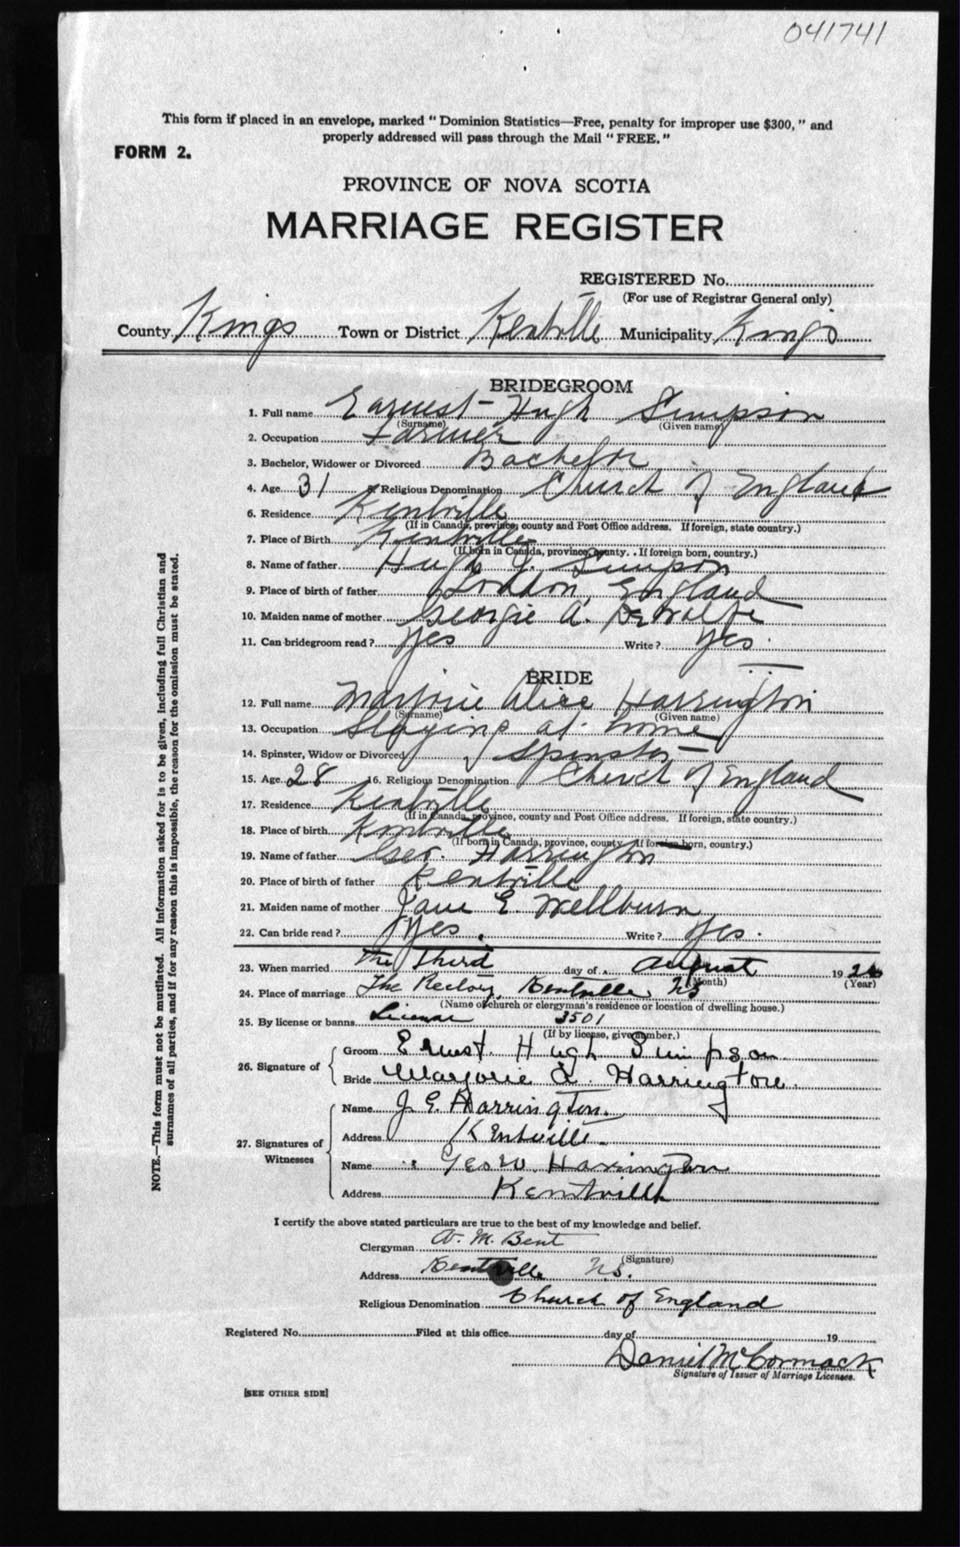 041741
This form if placed in an envelope, marked "Dominion Statistics—Free, penalty for improper use $300," and
properly addressed will pass through the Mail "FREE."
FORM 2.
PROVINCE OF NOVA SCOTIA
MARRIAGE REGISTER
REGISTERED No.
(For use of Registrar General only)
County Kings Town or District Kentville Municipality Kings
BRIDEGROOM
1. Full name Earnest Hugh Simpson
(Surname) (Given name)
2. Occupation Farmer
3. Bachelor, Widower or Divorced Bachelor
4. Age 31 Religious Denomination Church of England
6. Residence Kentville
(If in Canada, province, county and Post Office address. If foreign, state country.)
7. Place of Birth Kentville
(If born in Canada, province, county. If foreign born, country.)
8. Name of father Hugh J. Simpson
9. Place of birth of father London, England
10. Maiden name of mother Georgie A. DeWolfe
11. Can bridegroom read? Yes Write? Yes
BRIDE
12. Full name Marjorie Alice Harrington
(Surname) (Given name)
13. Occupation Staying at home
14. Spinster, Widow or Divorced Spinster
15. Age 28 16. Religious Denomination Church of England
17. Residence Kentville
(If in Canada, province, county and Post Office address. If foreign, state country.)
18. Place of birth Kentville
(If born in Canada, province, county. If foreign born, country.)
19. Name of father Geo. Harrington
20. Place of birth of father Kentville
21. Maiden name of mother Jane E Wellburn
22. Can bride read? Yes. Write? Yes.
23. When married the Third day of August 1926
(Month) (Year)
24. Place of marriage The Rectory, Kentville NS
(Name of church or clergyman's residence or location of dwelling house.)
25. By license or banns License 3501
(If by license, give number.)
26. Signature of
Groom Ernest Hugh Simpson
Bride Marjorie A. Harrington
27. Signatures of Witnesses
Name J. E. Harrington
Address Kentville
Name Geo W. Harrington
Address Kentville
I certify the above stated particulars are true to the best of my knowledge and belief.
Clergyman A. M. Bent
(Signature)
Address Kentville N.S.
Religious Denomination Church of England
Registered No. Filed at this office day of 19
Daniel McCormack
Signature of Issuer of Marriage Licenses.
[SEE OTHER SIDE]
NOTE.—This form must not be mutilated. All information asked for is to be given, including full Christian and
surnames of all parties, and if for any reason this is impossible, the reason for the omission must be stated.